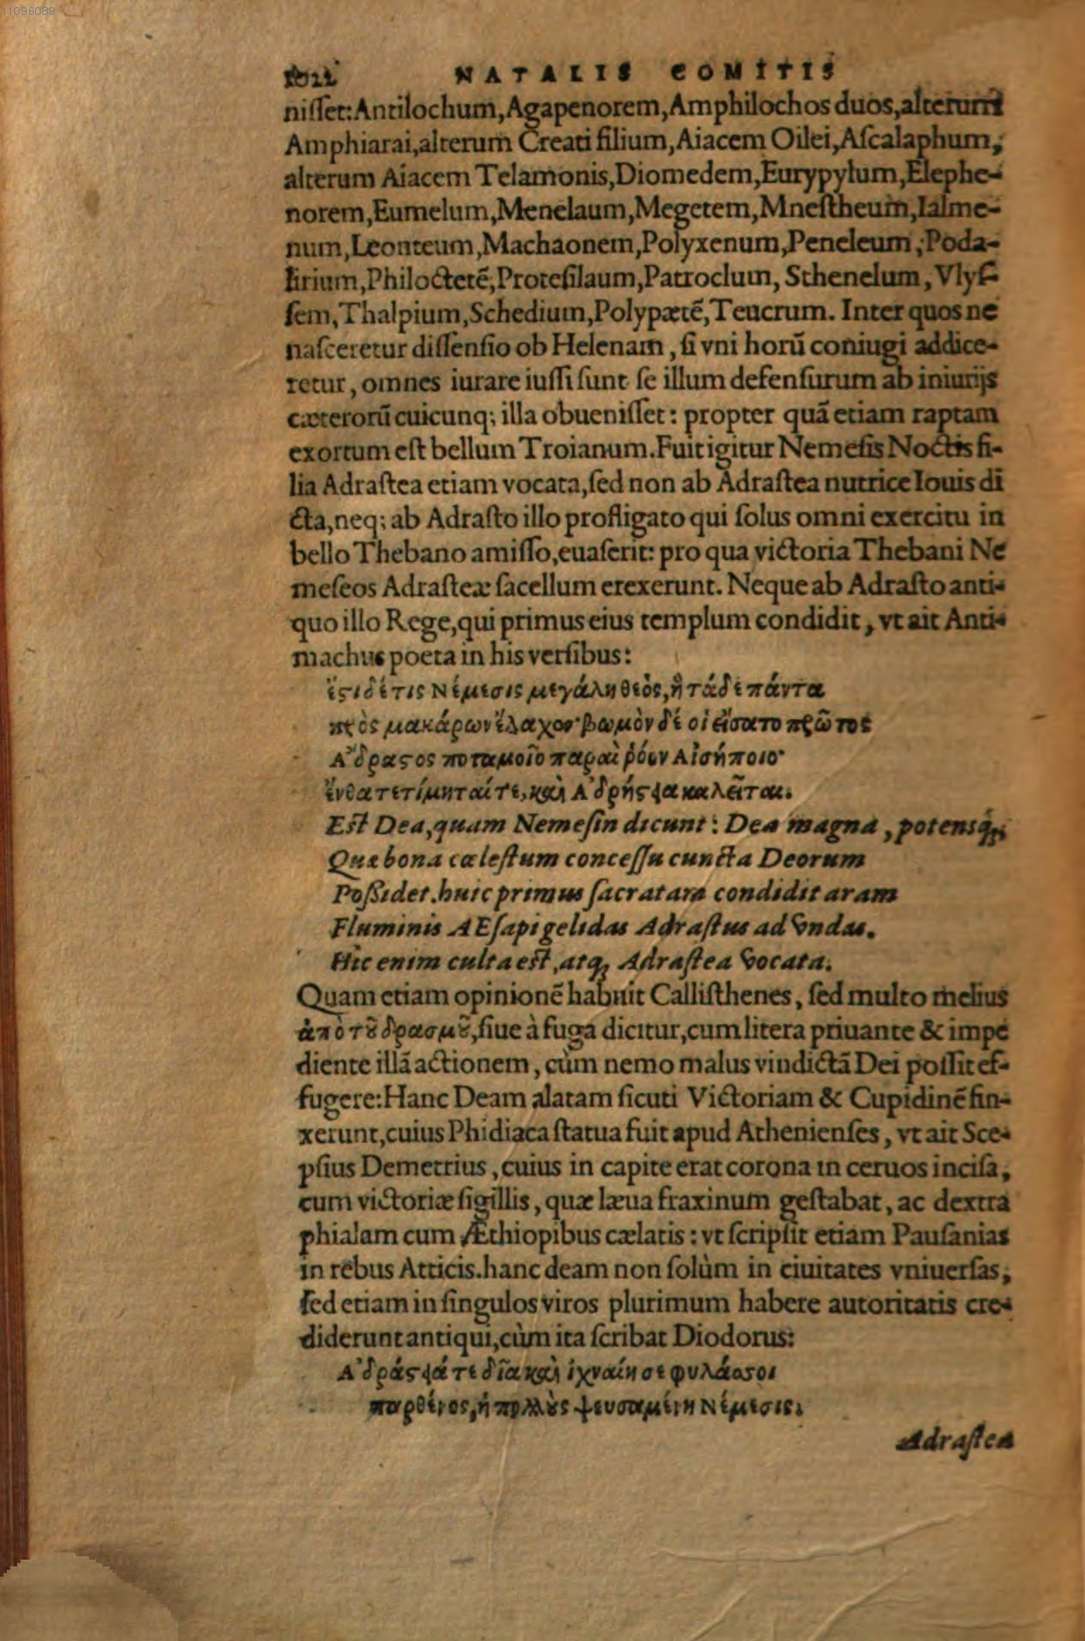 11096089
1022 NATALIS COMITIS
niſſet: Antilochum, Agapenorem, Amphilochos duos, alterum
Amphiarai, alterum Creati filium, Aiacem Oilei, Aſcalaphum,
alterum Aiacem Telamonis, Diomedem, Eurypylum, Elephe-
norem, Eumelum, Menelaum, Megetem, Mneſtheum, Ialme-
num, Leonteum, Machaonem, Polyxenum, Peneleum, Poda-
lirium, Philoctetē, Proteſilaum, Patroclum, Sthenelum, Vlyſ-
ſem, Thalpium, Schedium, Polypætē, Teucrum. Inter quos ne
naſceretur diſſenſio ob Helenam, ſi vni horū coniugi addice-
retur, omnes iurare iuſſi ſunt ſe illum defenſurum ab iniurijs
cæterorū cuicunq; illa obueniſſet: propter quā etiam raptam
exortum eſt bellum Troianum. Fuit igitur Nemeſis Noctis fi-
lia Adraſtea etiam vocata, ſed non ab Adraſtea nutrice Iouis di
cta, neq; ab Adraſto illo profligato qui ſolus omni exercitu in
bello Thebano amiſſo, euaſerit: pro qua victoria Thebani Ne
meſeos Adraſteæ ſacellum erexerunt. Neque ab Adraſto anti-
quo illo Rege, qui primus eius templum condidit, vt ait Anti-
machus poeta in his verſibus:
ἔϛι δέ τις Νέμεσις μεγάλη θεὸς, ἣ τάδε πάντα
πρὸς μακάρων ἔλαχον· βωμὸν δέ οἱ εἵσατο πρῶτος
Ἄδραϛος ποταμοῖο παραὶ ῥόον Αἰσήποιο·
ἔνθα τετίμηταί τε, καὶ Ἀδρήϛεια καλεῖται.
Eſt Dea, quam Nemeſin dicunt: Dea magna, potensq́;
Quæ bona cæleſtum conceſſu cuncta Deorum
Poſsidet. huic primus ſacratam condidit aram
Fluminis AEſapi gelidas Adraſtus ad vndas.
Hic enim culta eſt, atq; Adraſtea vocata.
Quam etiam opinionē habuit Calliſthenes, ſed multo melius
ἀπὸ τοῦ δρασμοῦ, ſiue à fuga dicitur, cum litera priuante & impe
diente illā actionem, cùm nemo malus vindictā Dei poſſit ef-
fugere: Hanc Deam alatam ſicuti Victoriam & Cupidinē fin-
xerunt, cuius Phidiaca ſtatua fuit apud Athenienſes, vt ait Sce-
pſius Demetrius, cuius in capite erat corona in ceruos inciſa,
cum victoriæ ſigillis, quæ læua fraxinum geſtabat, ac dextra
phialam cum Æthiopibus cælatis: vt ſcripſit etiam Pauſanias
in rebus Atticis. hanc deam non ſolùm in ciuitates vniuerſas,
ſed etiam in ſingulos viros plurimum habere autoritatis cre-
diderunt antiqui, cùm ita ſcribat Diodorus:
Ἀδράϛειά τε δῖα καὶ ἰχναίη σε φυλάσσοι
παρθένος, ἡ πολλοὺς ψευσαμένη Νέμεσις.
Adraſtea